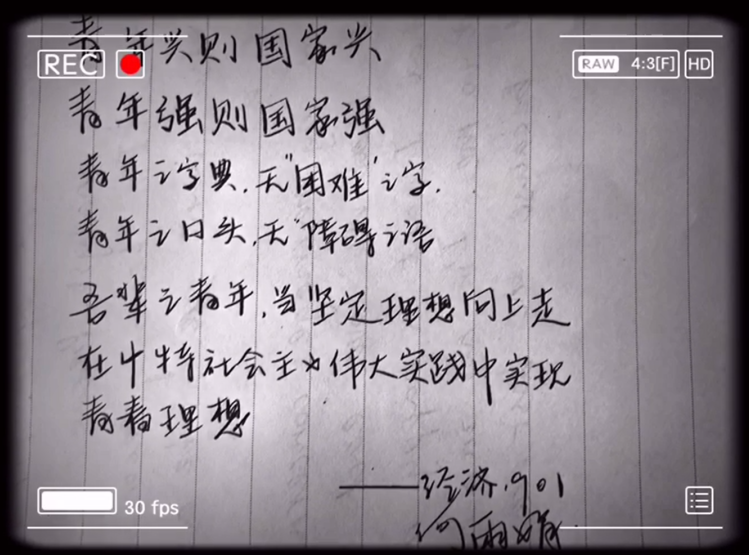 青年兴则国家兴
REC RAW 4:3[F] HD
青年强则国家强
青年之字典,无"困难"之字,
青年之口头,无"障碍"之语
吾辈之青年,当坚定理想向上走
在中特社会主义伟大实践中实现
青春理想
——经济.901
30 fps
何雨娟